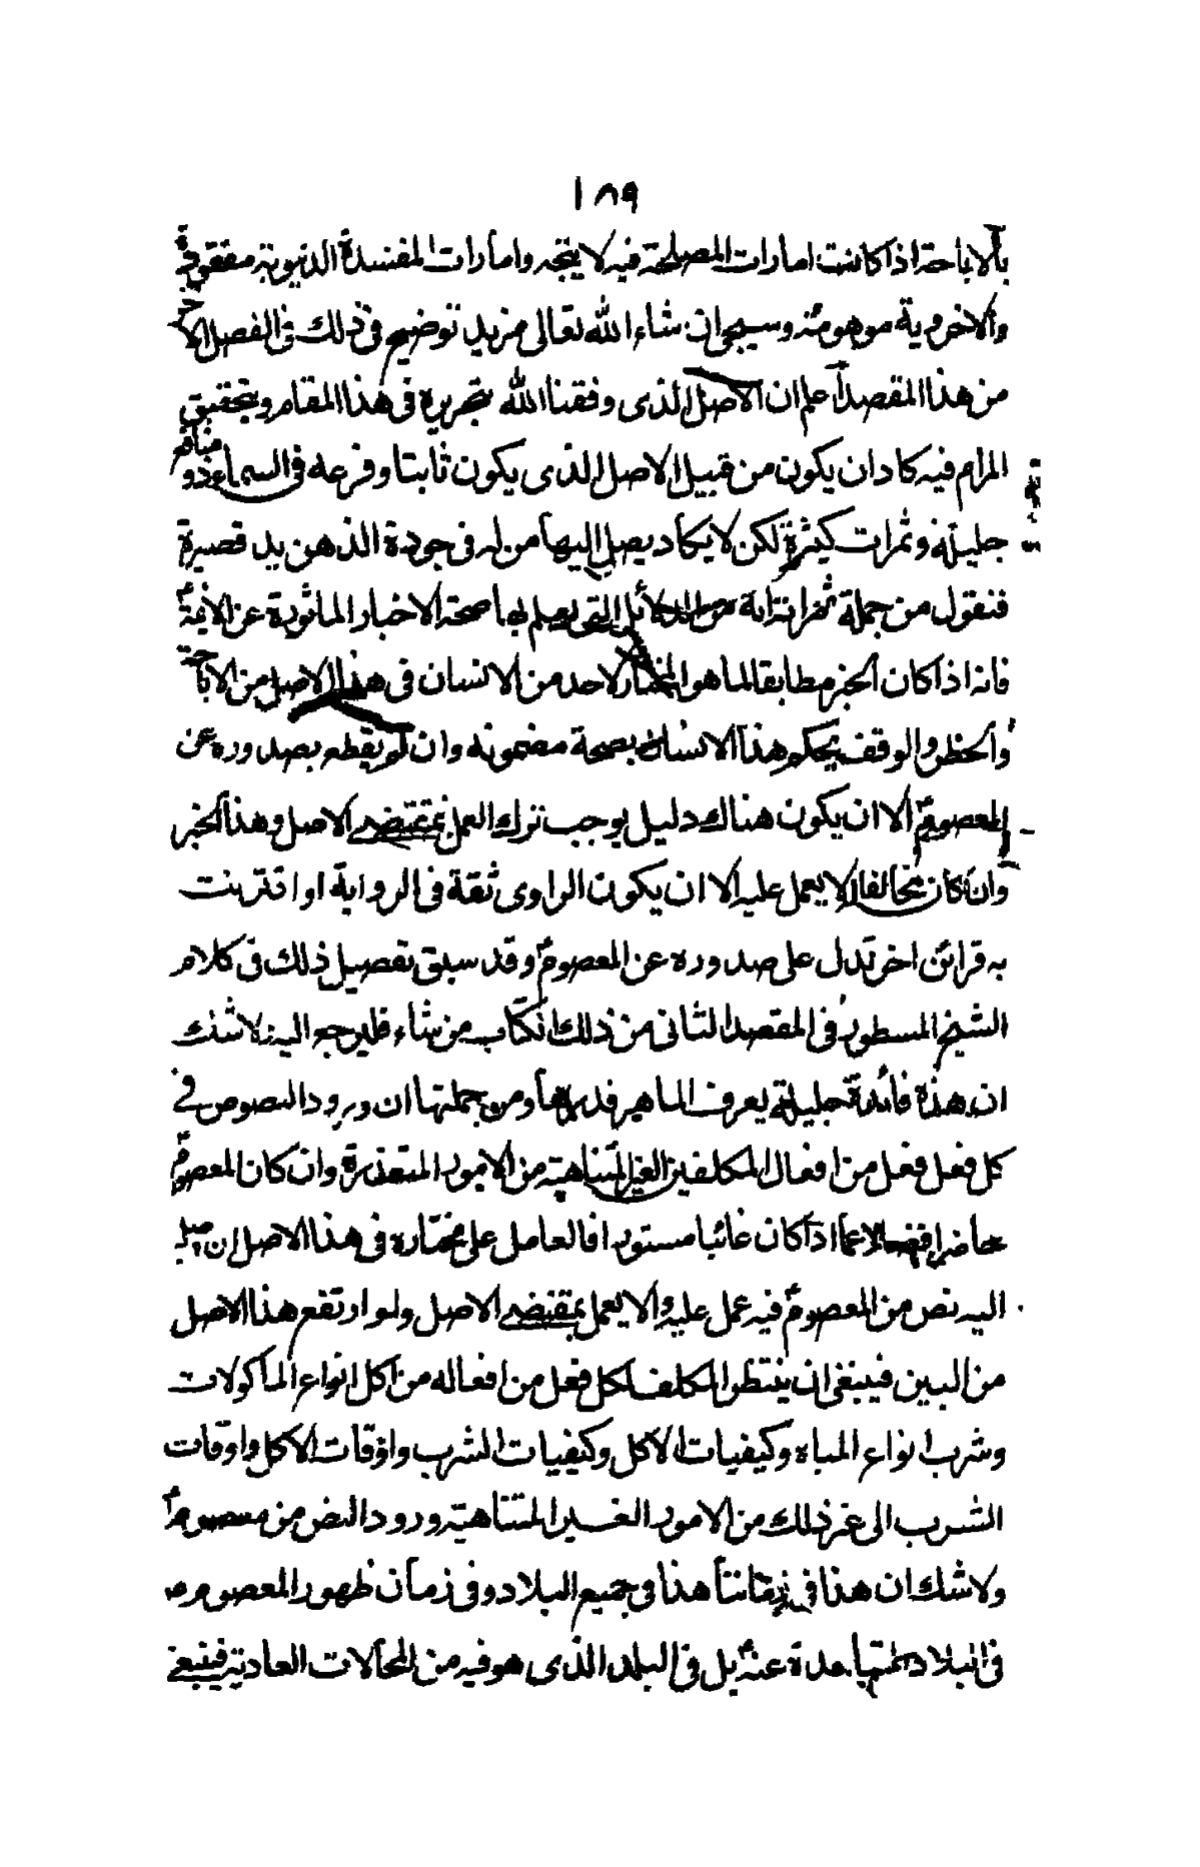 ١٨٩
بالاباحة اذا كانت امارات المصلحة فيه لا يتجه وامارات المفسدة الدنيوية مفقودة
والاخروية موهومة وسيجئ ان شاء الله تعالى مزيد توضيح فى ذلك فى الفصل الاخر
من هذا المقصد اعلم ان الاصل الذى وفقنا الله بتحريره فى هذا المقام وبتحقيق
المرام فيه كاد ان يكون من قبيل الاصل الذى يكون ثابتا وفرعه فى السماء ذو منافع
جليلة وثمرات كثيرة لكن لا يكاد يصل اليها من له فى جودة الذهن يد قصيرة
فنقول من جملة ثمراته انه من الدلائل التى يعلم بها صحة الاخبار الماثورة عن الائمة
فانه اذا كان الخبر مطابقا لما هو المختار لاحد من الانسان فى هذا الاصل من الاباحة
والحظر والوقف يحكم هذا الانسان بصحة مضمونه وان لم يقطع بصدوره عن
المعصوم الا ان يكون هناك دليل يوجب ترك العمل بمقتضى الاصل وهذا الخبر
وان كان مخالفا لا يعمل عليه الا ان يكون الراوى ثقة فى الرواية او اقترنت
به قرائن اخر تدل على صدوره عن المعصوم وقد سبق تفصيل ذلك فى كلام
الشيخ المسطور فى المقصد الثانى من ذلك الكتاب من شاء فليرجع اليه لا شك
ان هذه فائدة جليلة يعرف الماهر قدرها ومن جملتها ان ورود النصوص فى
كل فعل فعل من افعال المكلفين الغير المتناهية من الامور المتعذرة وان كان المعصوم
حاضرا فضلا عما اذا كان غائبا مستورا فالعامل على مختاره فى هذا الاصل ان وصل
اليه نص من المعصوم فيه عمل عليه والا يعمل بمقتضى الاصل ولو ارتفع هذا الاصل
من البين فينبغى ان ينتظر المكلف لكل فعل من افعاله من اكل انواع المأكولات
وشرب انواع المياه وكيفيات الاكل وكيفيات الشرب واوقات الاكل واوقات
الشرب الى غير ذلك من الامور الغير المتناهية ورود النص من معصوم
ولا شك ان هذا فى زماننا هذا فى جميع البلاد وفى زمان ظهور المعصوم ص
فى البلاد المتباعدة عنه بل فى البلد الذى هو فيه من المحالات العادية فينبغى